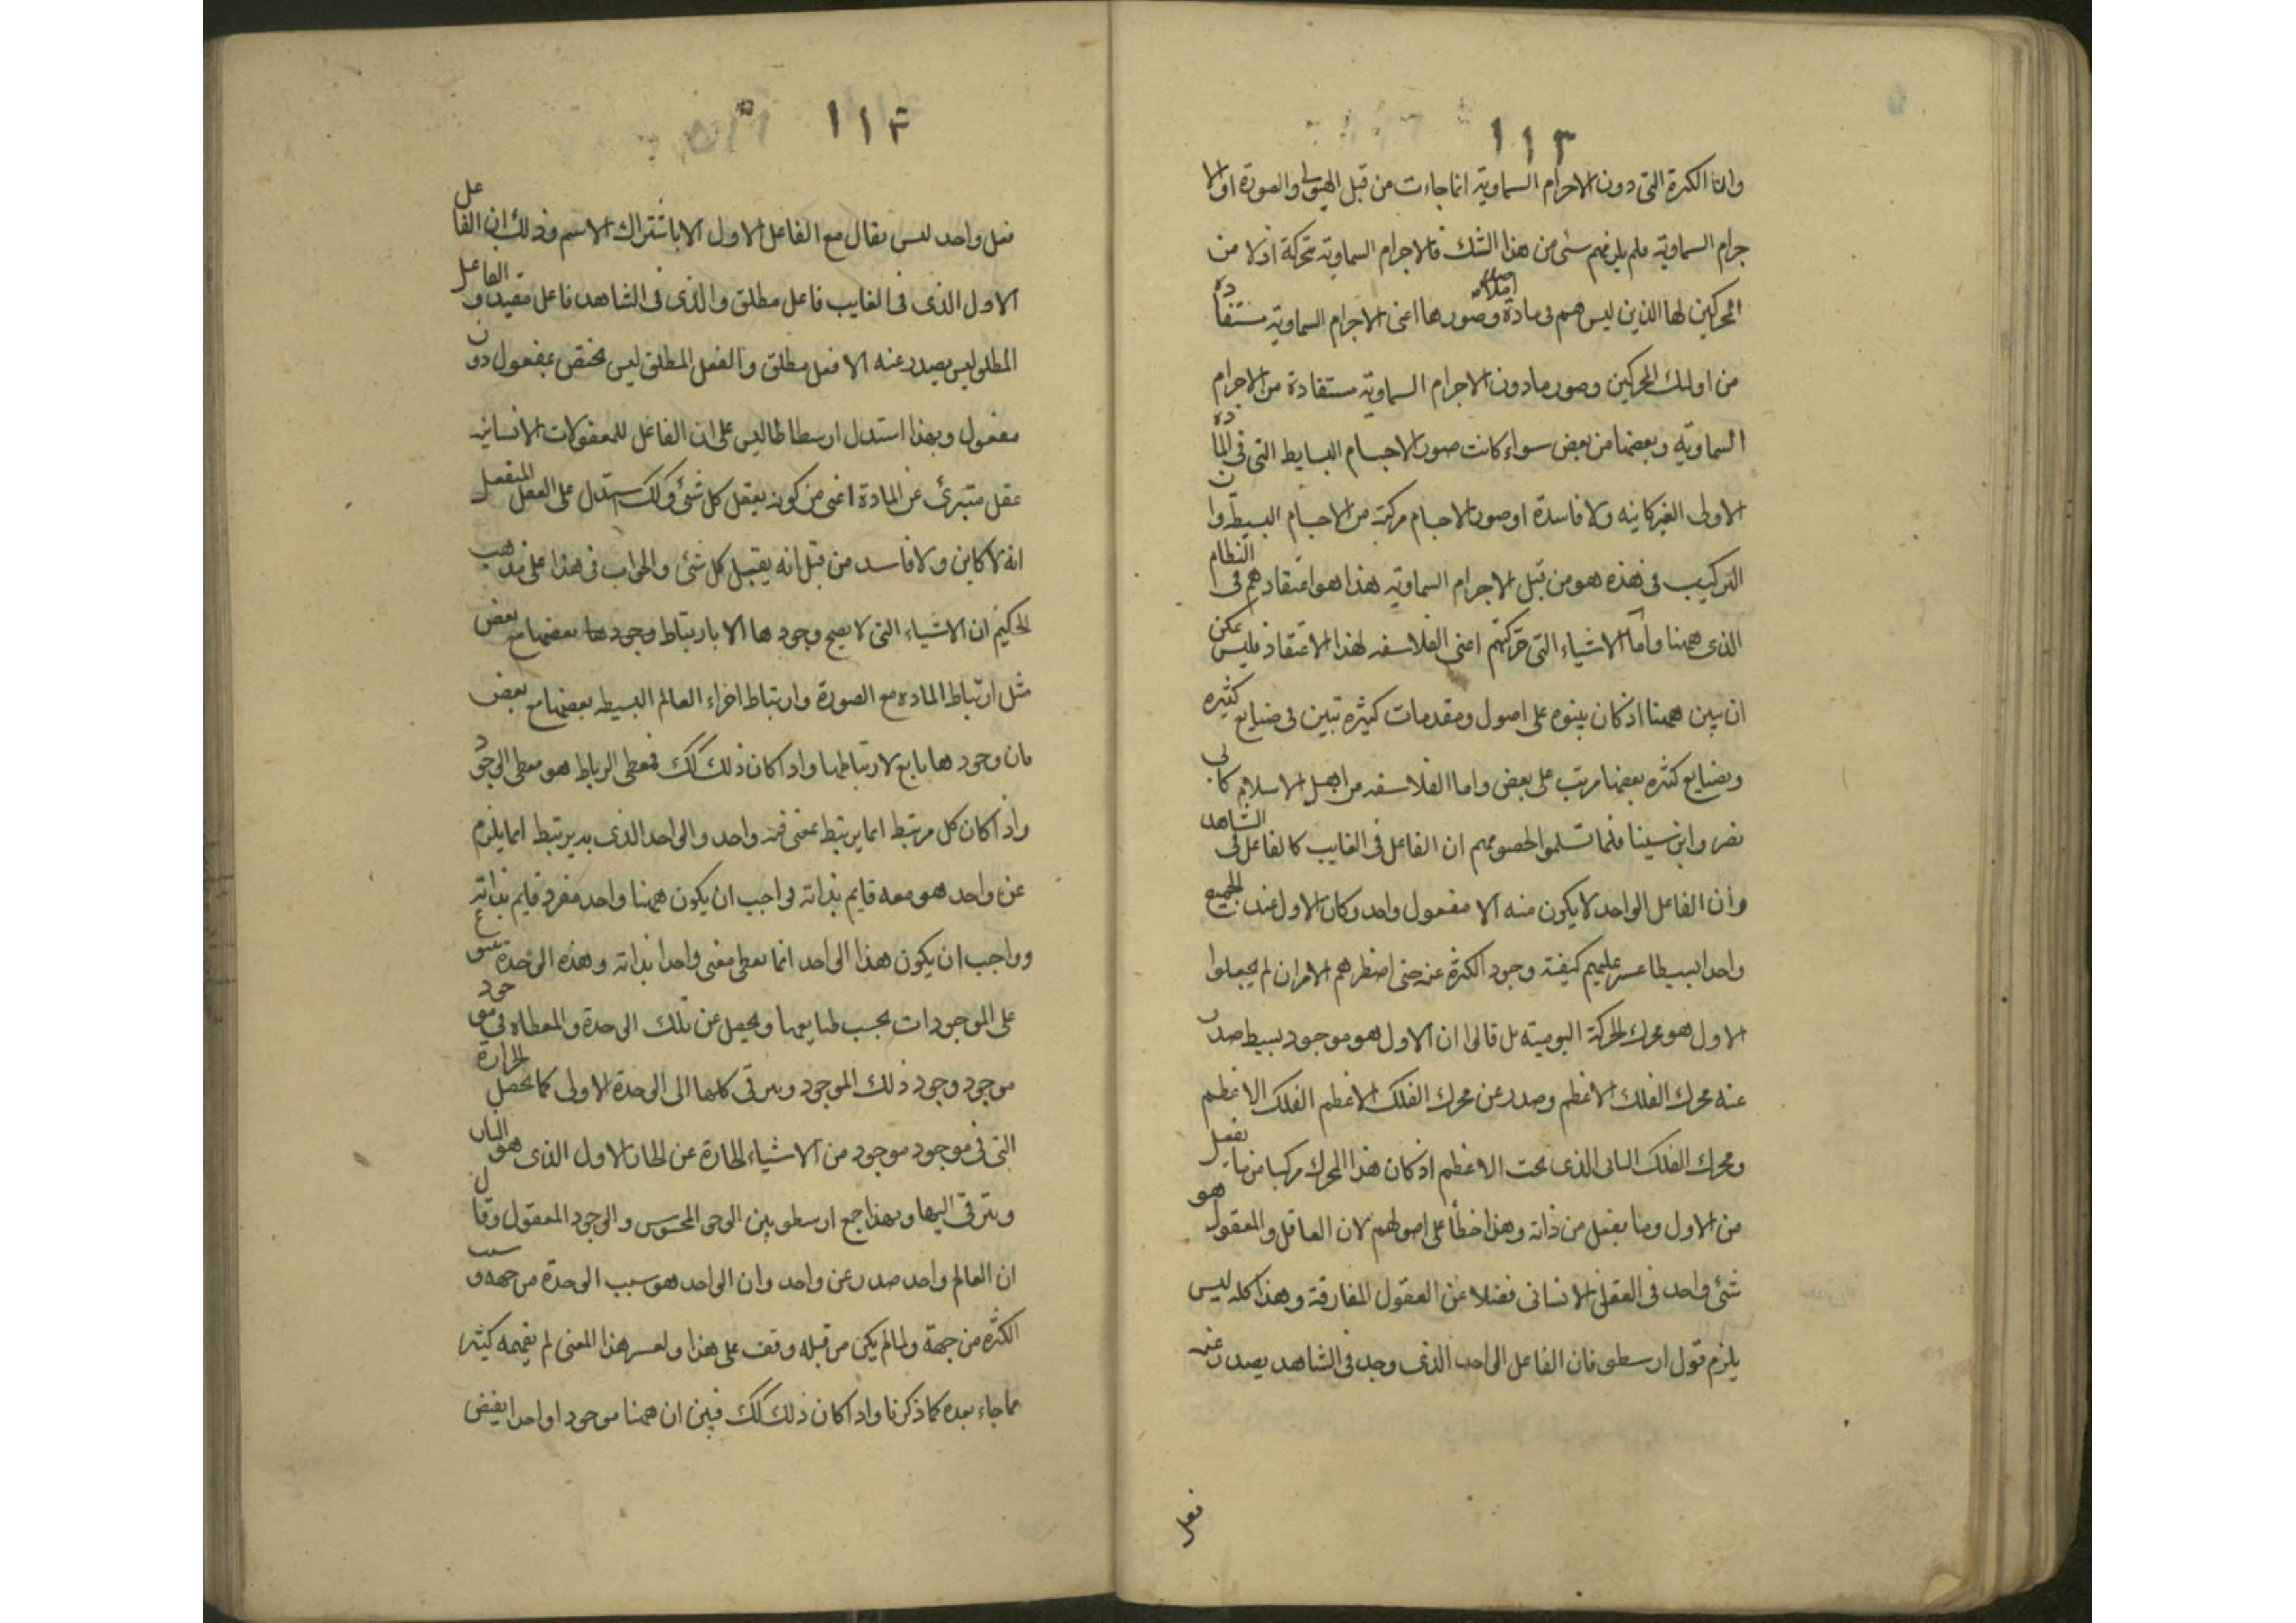 ١١٣
وان الكثرة التى دون الاجرام السماوية انما جاءت من قبل الهيولى والصورة والا
جرام السماوية فلم يلزمهم شى من هذا الشك فالاجرام السماوية متحركة اولا من
المحركين لها الذين ليس هم فى مادة اصلا وصورها اعنى الاجرام السماوية مستفادة
من اولئك المحركين وصور مادون الاجرام السماوية مستفادة من الاجرام
السماوية وبعضها من بعض سواء كانت صور الاجسام البسايط التى فى المادة
الاولى الغير كاينه ولا فاسدة او صور الاجسام مركبة من الاجسام البسيطه وان
التركيب فى هذه هو من قبل الاجرام السماوية هذا هو اعتقادهم فى النظام
الذى ههنا واما الاشياء التى حركتهم اعنى الفلاسفه لهذا الاعتقاد فليس يمكن
ان يبين ههنا اذ كان بينوه على اصول ومقدمات كثيره تبين فى صنايع كثيره
وبصنايع كثره بعضها مرتب على بعض واما الفلاسفه من اهل الاسلام كابى
نصر وابن سينا فلما تسلموا لخصومهم ان الفاعل فى الغايب كالفاعل فى الشاهد
وان الفاعل الواحد لا يكون منه الا مفعول واحد وكان الاول عند الجميع
واحدا بسيطا عسر عليهم كيفية وجود الكثرة عنه حتى اضطرهم الامر ان لم يجعلوا
الاول هو محرك الحركة اليومية بل قالوا ان الاول هو موجود بسيط صدر
عنه محرك الفلك الاعظم وصدر عن محرك الفلك الاعظم الفلك الاعظم
ومحرك الفلك الثانى الذى تحت الاعظم اذ كان هذا المحرك مركبا من ما يعقل
من الاول وما يعقل من ذاته وهذا خطأ على اصولهم لان العاقل والمعقول هو
شئ واحد فى العقل الانسانى فضلا عن العقول المفارقة وهذا كله ليس
يلزم قول ارسطو فان الفاعل الواحد الذى وجد فى الشاهد يصدر عنه
فعل
١١٤
فعل واحد ليس يقال مع الفاعل الاول الا باشتراك الاسم وذلك ان الفاعل
الاول الذى فى الغايب فاعل مطلق والذى فى الشاهد فاعل مقيد والفاعل
المطلق ليس يصدر عنه الا فعل مطلق والفعل المطلق ليس يختص بمفعول دون
مفعول وبهذا استدل ارسطاطاليس على ان الفاعل للمعقولات الانسانيه
عقل متبرئ عن المادة اعنى من كونه يعقل كل شئ وكك ستدل على العقل المنفعل
انه لا كاين ولا فاسد من قبل انه يعقل كل شئ والجواب فى هذا على مذهب
الحكيم ان الاشياء التى لا يصح وجودها الا بارتباط وجودها بعضها مع بعض
مثل ارتباط الماده مع الصورة وارتباط اجزاء العالم البسيطه بعضها مع بعض
فان وجودها تابع لارتباطها واذا كان ذلك كك فمعطى الرباط هو معطى الوجود
واذا كان كل مرتبط انما يرتبط بمعنى فيه واحد والواحد الذى به يرتبط انما يلزم
عن واحد هو معه قايم بذاته فواجب ان يكون ههنا واحد مفرد قايم بذاته
وواجب ان يكون هذا الواحد انما يعطى معنى واحدا بذاته وهذه الوحدة تتنوع
على الموجودات بحسب طبايعها ويحصل عن تلك الوحدة المعطاه فى موجود
موجود وجود ذلك الموجود وبترقى كلها الى الوحدة الاولى كما تحصل الحرارة
التى فى موجود موجود من الاشياء الحارة عن الحار الاول الذى هو النار
وبترقى اليها وبهذا جمع ارسطو بين الوجود المحسوس والوجود المعقول وقال
ان العالم واحد صدر عن واحد وان الواحد هو سبب الوحدة من جهه وسبب
الكثره من جهة ولما لم يكن من قبله وقف على هذا ولعسر هذا المعنى لم يفهمه كثير
مما جاء بعده كما ذكرنا واذا كان ذلك كك فبين ان ههنا موجودا واحدا يفيض